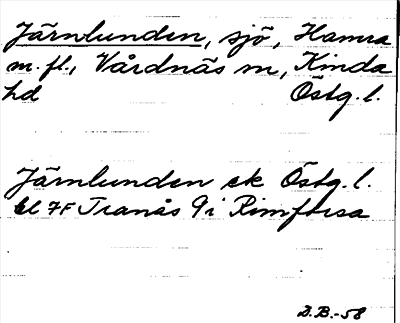 Järnlunden, sjö, Hamra
m.fl., Vårdnäs sn, Kinda
hd Östg.l.
Järnlunden ek Östg.l.
bl 7F Tranås 9i Rimforsa
D.B.-58